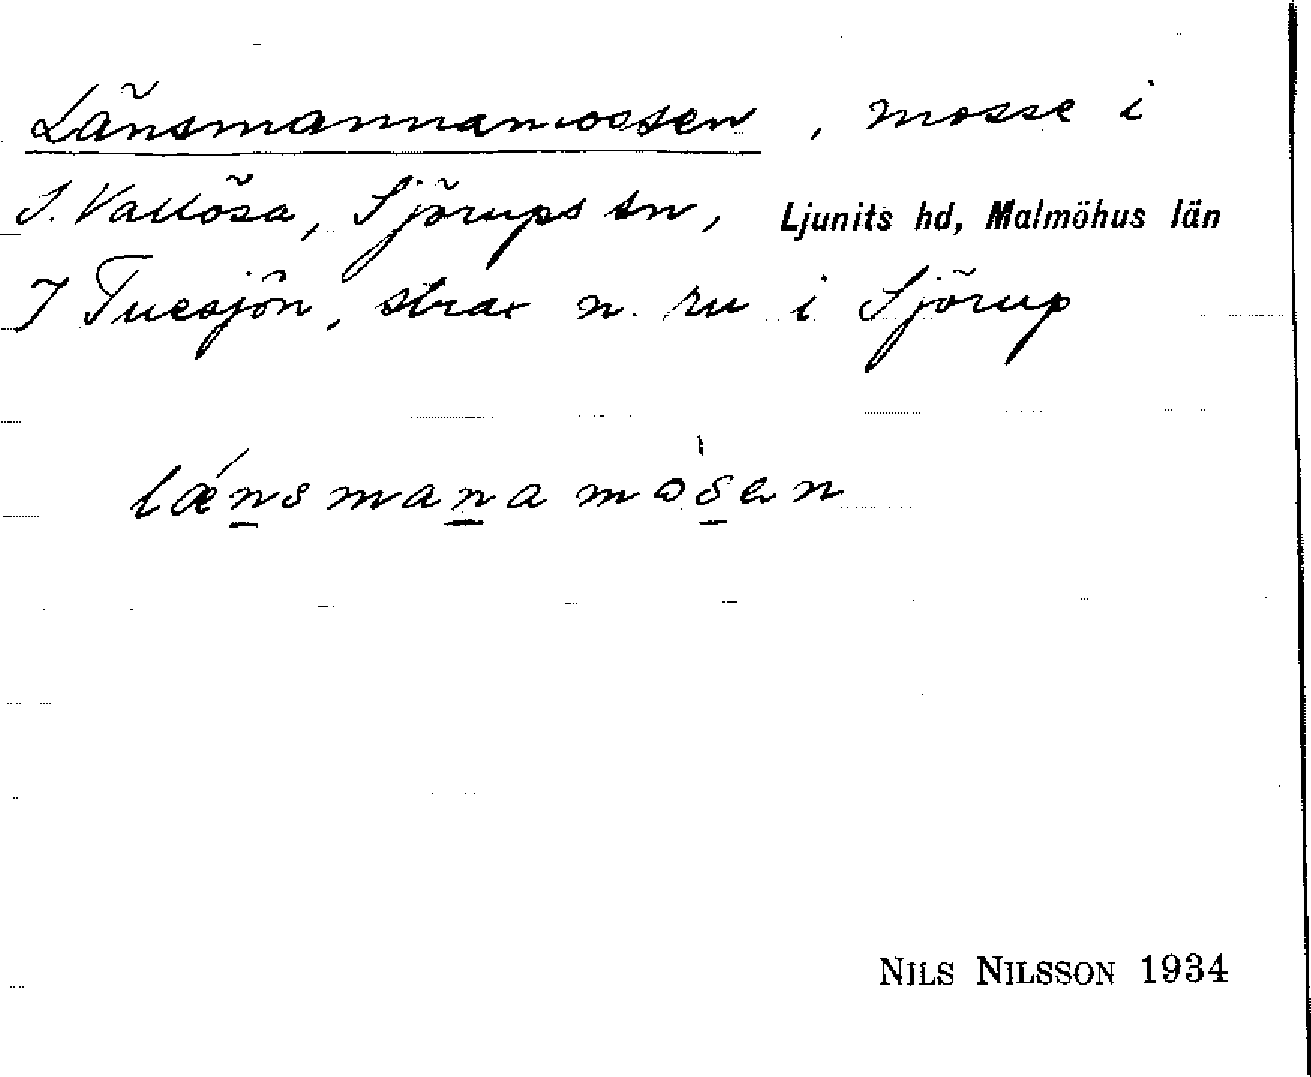 Länsmannamossen, mosse i
S. Vallösa, Sjörups sn, Ljunits hd, Malmöhus län
I Tuesjön, strax n. ru i Sjörup
lǽnsmanamòsen
NILS NILSSON 1934